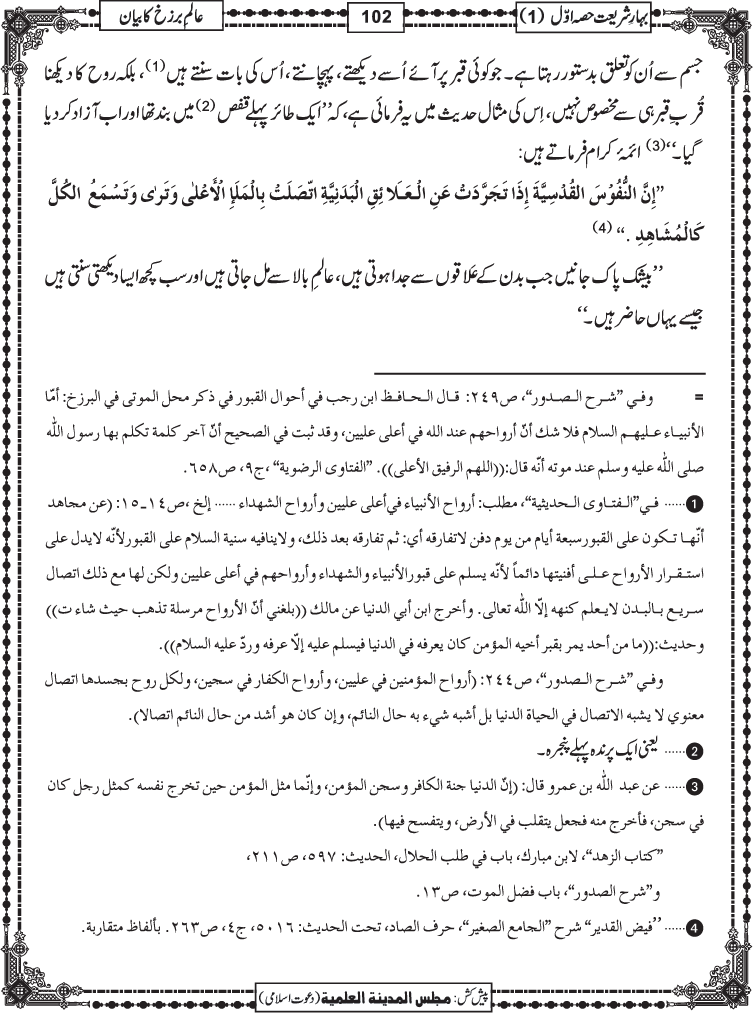 بہارِ شریعت حصہ اوّل (1)
102
عالمِ برزخ کا بیان
جسم سے اُن کو تعلق بدستور رہتا ہے۔ جو کوئی قبر پر آئے اُسے دیکھتے، پہچانتے، اُس کی بات سنتے ہیں(1)، بلکہ روح کا دیکھنا
قُربِ قبر ہی سے مخصوص نہیں، اِس کی مثال حدیث میں یہ فرمائی ہے، کہ ’’ایک طائر پہلے قفص(2) میں بند تھا اور اب آزاد کر دیا
گیا۔‘‘(3) ائمۂ کرام فرماتے ہیں:
”إِنَّ النُّفُوْسَ القُدْسِيَّةَ إِذَا تَجَرَّدَتْ عَنِ الْعَلَائِقِ الْبَدَنِيَّةِ اتَّصَلَتْ بِالْمَلَإِ الْأَعْلٰى وَتَرٰى وَتَسْمَعُ الكُلَّ
كَالْمُشَاهِدِ .“ (4)
’’بیشک پاک جانیں جب بدن کے عَلاقوں سے جدا ہوتی ہیں، عالمِ بالا سے مل جاتی ہیں اور سب کچھ ایسا دیکھتی سنتی ہیں
جیسے یہاں حاضر ہیں۔‘‘
= وفي ”شرح الصدور“، ص٢٤٩: قال الحافظ ابن رجب في أحوال القبور في ذكر محل الموتى في البرزخ: أمّا
الأنبياء عليهم السلام فلا شك أنّ أرواحهم عند الله في أعلى عليين، وقد ثبت في الصحيح أنّ آخر كلمة تكلم بها رسول اللّٰه
صلى اللّٰه عليه وسلم عند موته أنّه قال:((اللهم الرفيق الأعلى)). ”الفتاوى الرضوية“ ،ج٩، ص٦٥٨.
1...... في”الفتاوى الحديثية“، مطلب: أرواح الأنبياء في أعلى عليين وأرواح الشهداء ...... إلخ ،ص١٤ـ١٥: (عن مجاهد
أنّها تكون على القبور سبعة أيام من يوم دفن لا تفارقه أي: ثم تفارقه بعد ذلك، ولا ينافيه سنية السلام على القبور لأنّه لا يدل على
استقرار الأرواح على أفنيتها دائماً لأنّه يسلم على قبور الأنبياء والشهداء وأرواحهم في أعلى عليين ولكن لها مع ذلك اتصال
سريع بالبدن لا يعلم كنهه إلّا اللّٰه تعالى. وأخرج ابن أبي الدنيا عن مالك ((بلغني أنّ الأرواح مرسلة تذهب حيث شاء ت))
وحديث:((ما من أحد يمر بقبر أخيه المؤمن كان يعرفه في الدنيا فيسلم عليه إلّا عرفه وردّ عليه السلام)).
وفي ”شرح الصدور“، ص٢٤٤: (أرواح المؤمنين في عليين، وأرواح الكفار في سجين، ولكل روح بجسدها اتصال
معنوي لا يشبه الاتصال في الحياة الدنيا بل أشبه شيء به حال النائم، وإن كان هو أشد من حال النائم اتصالا).
2...... یعنی ایک پرندہ پہلے پنجرہ۔
3...... عن عبد اللّٰه بن عمرو قال: (إنّ الدنيا جنة الكافر وسجن المؤمن، وإنّما مثل المؤمن حين تخرج نفسه كمثل رجل كان
في سجن، فأخرج منه فجعل يتقلب في الأرض، ويتفسح فيها).
”كتاب الزهد“، لابن مبارك، باب في طلب الحلال، الحديث: ٥٩٧، ص٢١١،
و”شرح الصدور“، باب فضل الموت، ص١٣.
4...... ’’فيض القدير“ شرح ”الجامع الصغير“، حرف الصاد، تحت الحديث: ٥٠١٦، ج٤، ص٢٦٣. بألفاظ متقاربة.
پیش کش: مجلس المدینة العلمیة (دعوت اسلامی)